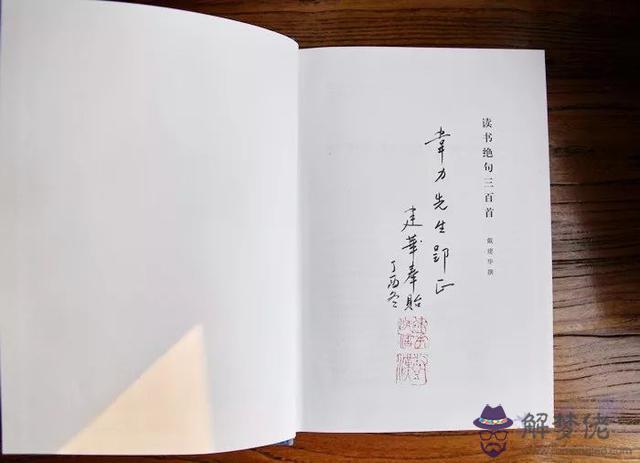 读书绝句三百首
戴建华 撰
韋力先生郢正
建華奉貽
丁酉冬
解梦佬